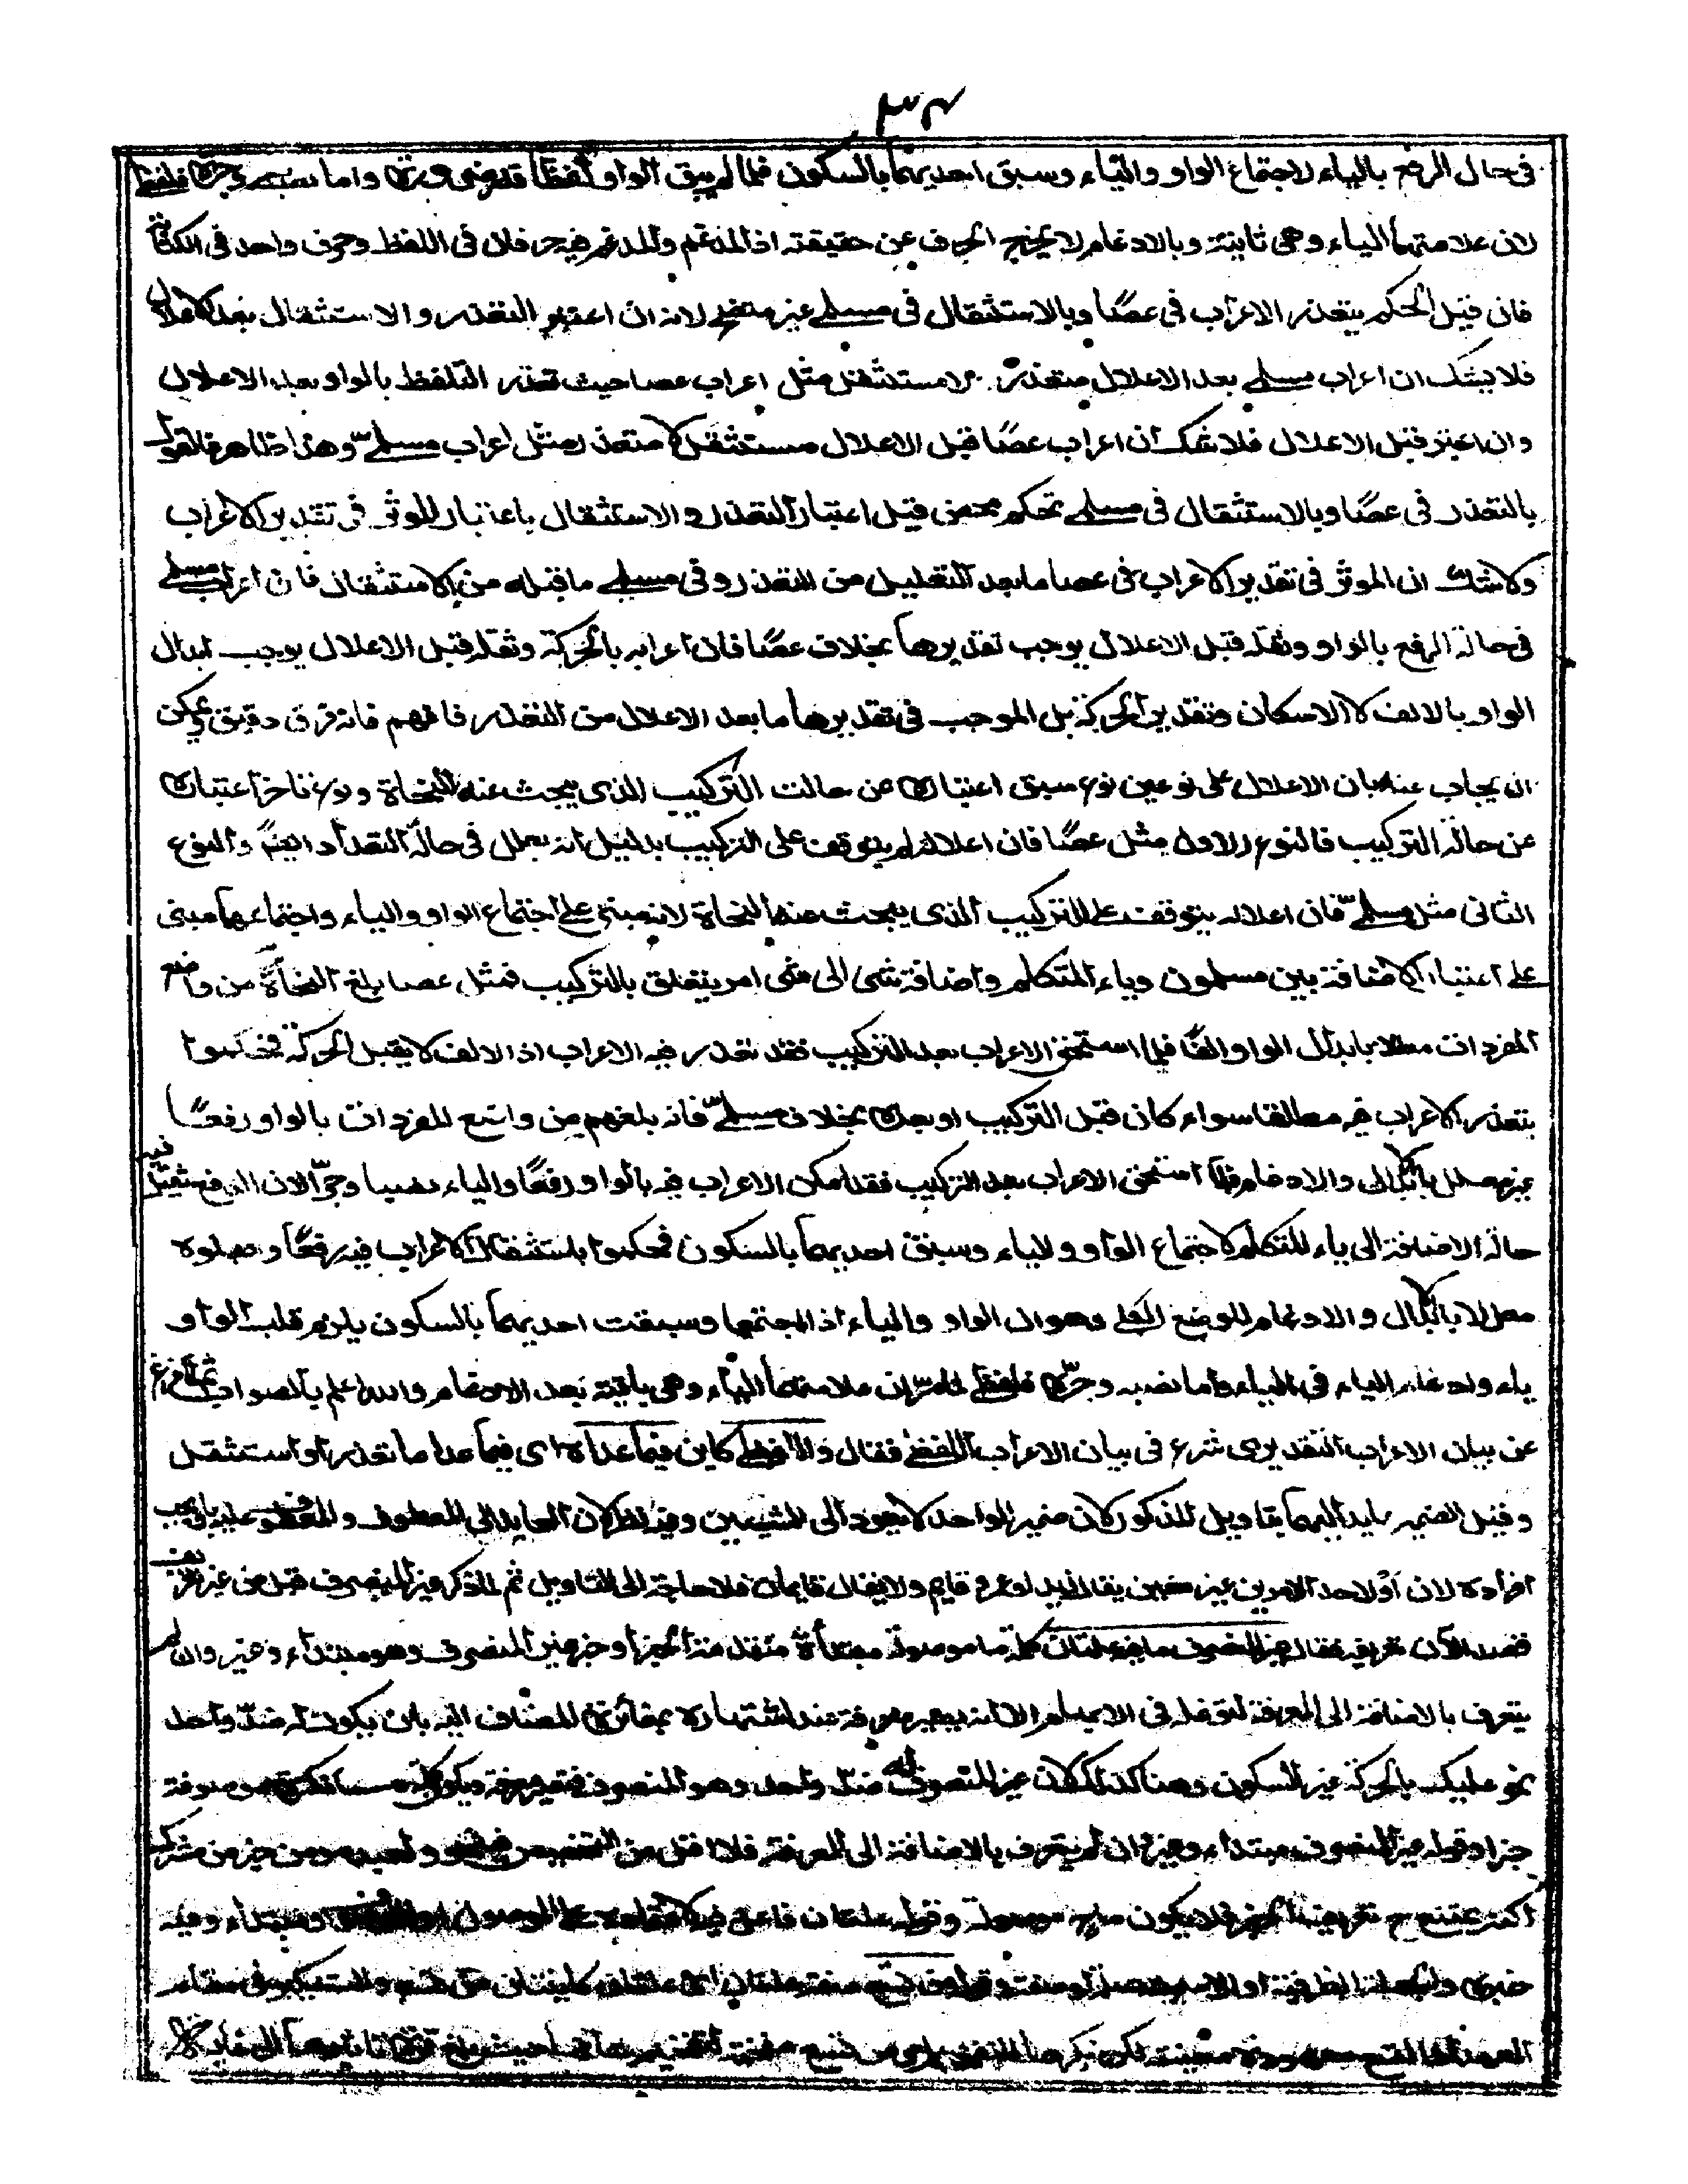 ٣٤
في حال الرفع بالياء لاجتماع الواو والياء وسبق احديهما بالسكون فلما لم يبق الواو لفظا قدر في ورته واما نصبه وجره فلفظي
لان علامتهما الياء وهي ثابتة وبالادغام لا يخرج الحرف عن حقيقته اذ المدغم والمدغم فيه حرفان في اللفظ وحرف واحد في الكتابة
فان قيل الحكم بتعذر الاعراب في عصًا وبالاستثقال في مسلمي غير متجه لانه ان اعتبر التعذر والاستثقال بعد الاعلال
فلا يشك ان اعراب مسلمي بعد الاعلال متعذر لا مستثقل مثل اعراب عصا حيث تعذر التلفظ بالواو بعد الاعلال
وان اعتبر قبل الاعلال فلا شك ان اعراب عصًا قبل الاعلال مستثقل لا متعذر مثل اعراب مسلمي وهذا ظاهر فالقول
بالتعذر في عصًا وبالاستثقال في مسلمي تحكم محض قيل اعتبار التعذر والاستثقال باعتبار الموثر في تقدير الاعراب
ولا شك ان الموثر في تقدير الاعراب في عصا ما بعد التعليل من التعذر وفي مسلمي ما قبله من الاستثقال فان اعراب مسلمي
في حالة الرفع بالواو وثقله قبل الاعلال يوجب تقديرها بخلاف عصًا فان اعرابه بالحركة وثقله قبل الاعلال يوجب ابدال
الواو بالالف لا الاسكان وتقدير الحركة بل الموجب في تقديرها ما بعد الاعلال من التعذر فافهم فانه فرق دقيق ويمكن
ان يجاب عنه بان الاعلال على نوعين نوع سبق اعتباره عن حالت التركيب الذي يبحث عنه النحاة ونوع تاخر اعتباره
عن حالة التركيب فالنوع الاول مثل عصًا فان اعلاله لم يتوقف على التركيب بدليل انه يعلل في حالة التعداد ايضًا والنوع
الثاني مثل مسلمي فان اعلاله يتوقف على التركيب الذي يبحث عنه النحاة لانه مبني على اجتماع الواو والياء واجتماعهما مبني
على اعتبار الاضافة بين مسلمون وياء المتكلم واضافة شي الى شي امر يتعلق بالتركيب فمثل عصا بلغ النحاة من واضع
المفردات معللا بابدال الواو الفًا فلما استحق الاعراب بعد التركيب فقد تعذر فيه الاعراب اذ الالف لا يقبل الحركة فحكموا
بتعذر الاعراب فيه مطلقا سواء كان قبل التركيب او بعده بخلاف مسلمي فانه بلغهم من واضع المفردات بالواو رفعًا
غير معلل بالابدال والادغام فلما استحق الاعراب بعد التركيب فقد امكن الاعراب فيه بالواو رفعًا والياء نصبا وجرا الا ان الرفع ثقيل فيه
حالة الاضافة الى ياء المتكلم لاجتماع الواو والياء وسبق احديهما بالسكون فحكموا باستثقال الاعراب فيه رفعًا وجعلوه
معللا بالابدال والادغام للوضع الكلي وهو ان الواو والياء اذا اجتمعا وسبقت احديهما بالسكون يلزم قلب الواو
ياء وادغام الياء في الياء واما نصبه وجره فلفظي لما مر ان علامتهما الياء وهي باقية بعد الادغام والله اعلم بالصواب ثم لما فرغ
عن بيان الاعراب التقديري شرع في بيان الاعراب اللفظي فقال واللفظي كاين فيما عداه اي فيما عدا ما تعذر او استثقل
وقيل الضمير عايد اليهما بتاويل المذكور لان ضمير الواحد لا يعود الى الشيئين وفيه نظر لان العايد الى المعطوف والمعطوف عليه باو يجب
افراده لان او لاحد الامرين غير معين يقال زيد او عمرو قايم ولا يقال قايمان فلا حاجة الى التاويل ثم لما ذكر غير المنصرف قبل من غير تعريف
قصد الآن تعريفه فقال غير المنصرف ما فيه علتان كلمة ما موصولة مبتدأ متقدمة الخبر او خبر غير المنصرف وهو مبتداء وغير وان لم
يتعرف بالاضافة الى المعرفة لتوغله في الابهام الا انه يصير معرفة عند اشتهاره بمغائرة المضاف اليه بان يكون له ضد واحد
نحو عليك بالحركة غير السكون وهنا كذلك لان غير المنصرف له ضد واحد وهو المنصرف فتصير معرفة ويكون كلمة ما نكرة موصوفة
خبرا وقوله غير المنصرف مبتداء وغير وان لم يتعرف بالاضافة الى المعرفة فلا اقل من التخصيص
اكثر يمتنع ح تعريف الخبر فلا يكون ما ح موصولة وقوله علتان فاعل فيه لاعتماده على الموصول او الموصوف او مبتداء وفيه
خبره والجملة الظرفية او الاسمية صلة او صفة وقوله من تسع صفة علتان اي علتان كاينتان من تسع